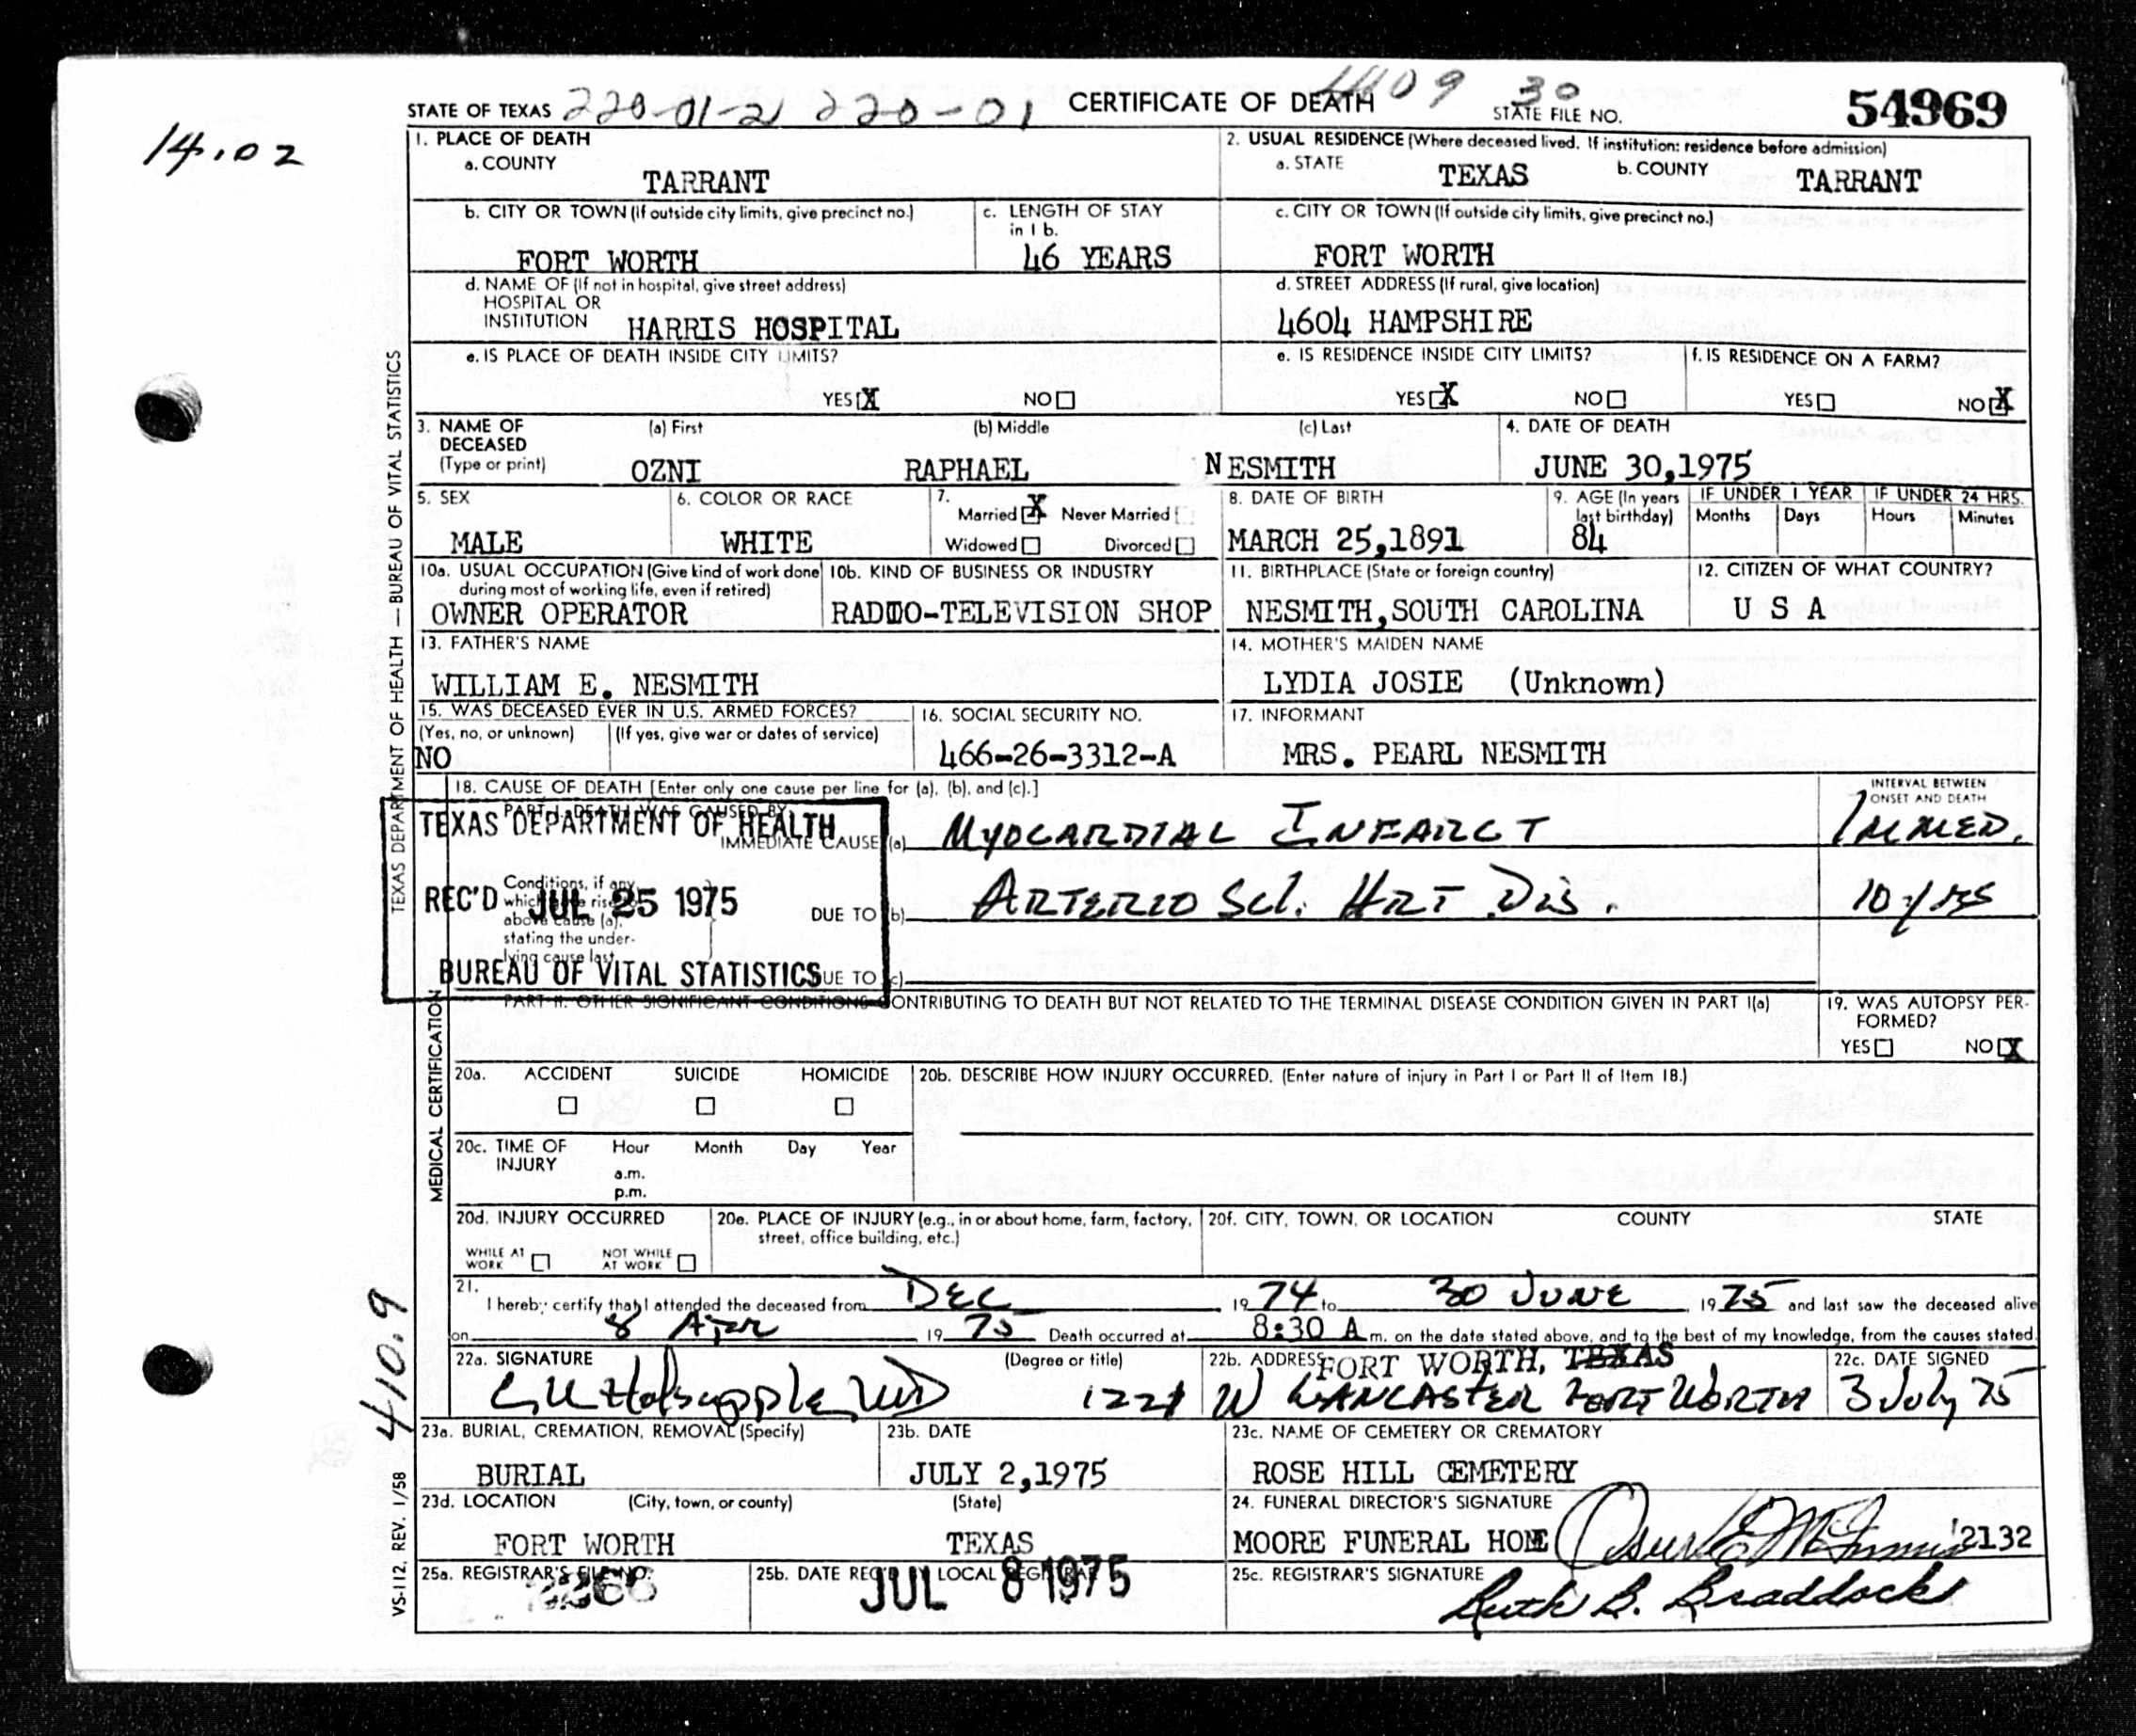 14.02
STATE OF TEXAS 220-01-21 220-01 CERTIFICATE OF DEATH 4109 30 STATE FILE NO. 54969
1. PLACE OF DEATH
a. COUNTY
TARRANT
2. USUAL RESIDENCE (Where deceased lived. If institution: residence before admission)
a. STATE TEXAS b. COUNTY TARRANT
b. CITY OR TOWN (If outside city limits, give precinct no.)
FORT WORTH
c. LENGTH OF STAY
in 1 b.
46 YEARS
c. CITY OR TOWN (If outside city limits, give precinct no.)
FORT WORTH
d. NAME OF (If not in hospital, give street address)
HOSPITAL OR
INSTITUTION HARRIS HOSPITAL
d. STREET ADDRESS (If rural, give location)
4604 HAMPSHIRE
e. IS PLACE OF DEATH INSIDE CITY LIMITS?
YES X NO
e. IS RESIDENCE INSIDE CITY LIMITS?
YES X NO
f. IS RESIDENCE ON A FARM?
YES NO X
3. NAME OF
DECEASED
(Type or print)
(a) First (b) Middle (c) Last
OZNI RAPHAEL NESMITH
4. DATE OF DEATH
JUNE 30,1975
5. SEX
MALE
6. COLOR OR RACE
WHITE
7.
Married X Never Married
Widowed Divorced
8. DATE OF BIRTH
MARCH 25,1891
9. AGE (In years
last birthday)
84
IF UNDER 1 YEAR
Months Days
IF UNDER 24 HRS.
Hours Minutes
10a. USUAL OCCUPATION (Give kind of work done
during most of working life, even if retired)
OWNER OPERATOR
10b. KIND OF BUSINESS OR INDUSTRY
RADIO-TELEVISION SHOP
11. BIRTHPLACE (State or foreign country)
NESMITH,SOUTH CAROLINA
12. CITIZEN OF WHAT COUNTRY?
U S A
13. FATHER'S NAME
WILLIAM E. NESMITH
14. MOTHER'S MAIDEN NAME
LYDIA JOSIE (Unknown)
15. WAS DECEASED EVER IN U.S. ARMED FORCES?
(Yes, no, or unknown) (If yes, give war or dates of service)
NO
16. SOCIAL SECURITY NO.
466-26-3312-A
17. INFORMANT
MRS. PEARL NESMITH
18. CAUSE OF DEATH [Enter only one cause per line for (a), (b), and (c).]
INTERVAL BETWEEN
ONSET AND DEATH
PART I. DEATH WAS CAUSED BY:
TEXAS DEPARTMENT OF HEALTH
IMMEDIATE CAUSE (a) MYOCARDIAL INFARCT IMMED.
Conditions, if any,
which gave rise to
above cause (a),
stating the under-
lying cause last.
REC'D JUL 25 1975
DUE TO (b) ARTERIO Scl. HRT DIS. 10 yrs
BUREAU OF VITAL STATISTICS
DUE TO (c)
PART II. OTHER SIGNIFICANT CONDITIONS CONTRIBUTING TO DEATH BUT NOT RELATED TO THE TERMINAL DISEASE CONDITION GIVEN IN PART I(a)
19. WAS AUTOPSY PER-
FORMED?
YES NO X
20a. ACCIDENT SUICIDE HOMICIDE
20b. DESCRIBE HOW INJURY OCCURRED. (Enter nature of injury in Part I or Part II of Item 18.)
20c. TIME OF
INJURY
Hour Month Day Year
a.m.
p.m.
20d. INJURY OCCURRED
WHILE AT
WORK
NOT WHILE
AT WORK
20e. PLACE OF INJURY (e.g., in or about home, farm, factory,
street, office building, etc.)
20f. CITY, TOWN, OR LOCATION COUNTY STATE
21.
I hereby certify that I attended the deceased from DEC 1974 to 30 JUNE, 1975 and last saw the deceased alive
on 8 Apr, 1975 Death occurred at 8:30 A m. on the date stated above, and to the best of my knowledge, from the causes stated.
22a. SIGNATURE (Degree or title)
Holsapple MD
22b. ADDRESS FORT WORTH, TEXAS
1221 W LANCASTER FORT WORTH
22c. DATE SIGNED
3 July 75
23a. BURIAL, CREMATION, REMOVAL (Specify)
BURIAL
23b. DATE
JULY 2,1975
23c. NAME OF CEMETERY OR CREMATORY
ROSE HILL CEMETERY
23d. LOCATION (City, town, or county) (State)
FORT WORTH TEXAS
24. FUNERAL DIRECTOR'S SIGNATURE
MOORE FUNERAL HOME 2132
25a. REGISTRAR'S FILE NO.
25b. DATE REC'D BY LOCAL REGISTRAR
JUL 8 1975
25c. REGISTRAR'S SIGNATURE
Ruth B. Braddock
TEXAS DEPARTMENT OF HEALTH — BUREAU OF VITAL STATISTICS
MEDICAL CERTIFICATION
410.9
VS-112, REV. 1/58